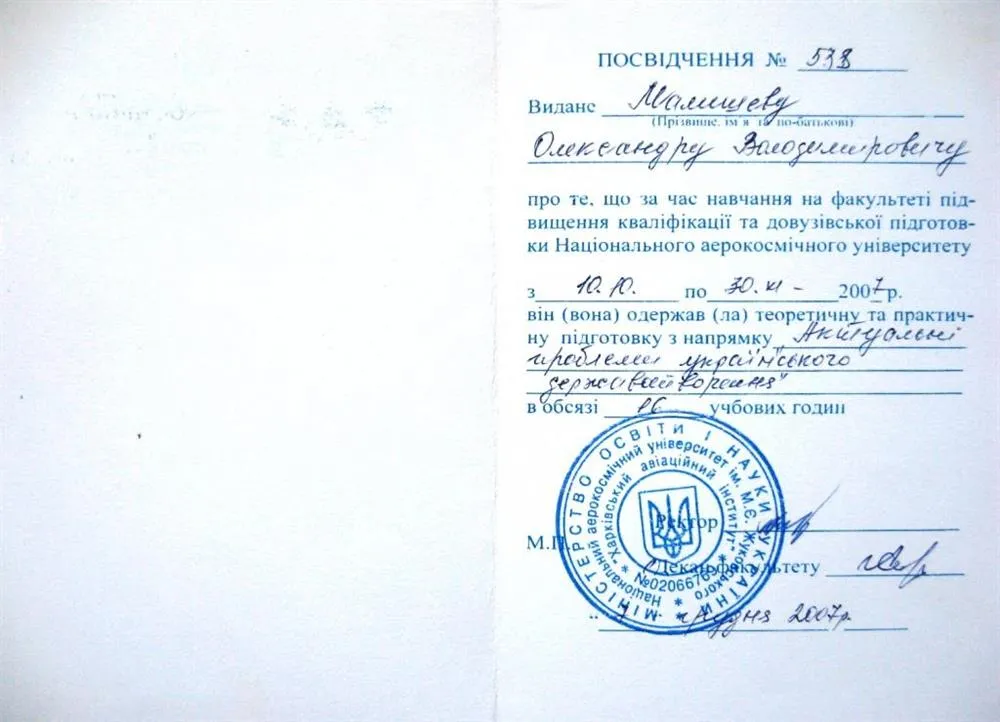 ПОСВІДЧЕННЯ № 538
Видане Малишеву
(Прізвище, ім'я та по-батькові)
Олександру Володимировичу
про те, що за час навчання на факультеті під-
вищення кваліфікації та довузівської підготов-
ки Національного аерокосмічного університету
з 10.10. по 30.XI - 2007 р.
він (вона) одержав (ла) теоретичну та практич-
ну підготовку з напрямку „Актуальні
проблеми українського
державотворення"
в обсязі 16 учбових годин
МІНІСТЕРСТВО ОСВІТИ І НАУКИ УКРАЇНИ
Національний аерокосмічний університет ім. М.Є. Жуковського
"Харківський авіаційний інститут"
№02066769
Ректор
М.П.
Декан факультету
грудня 2007р.